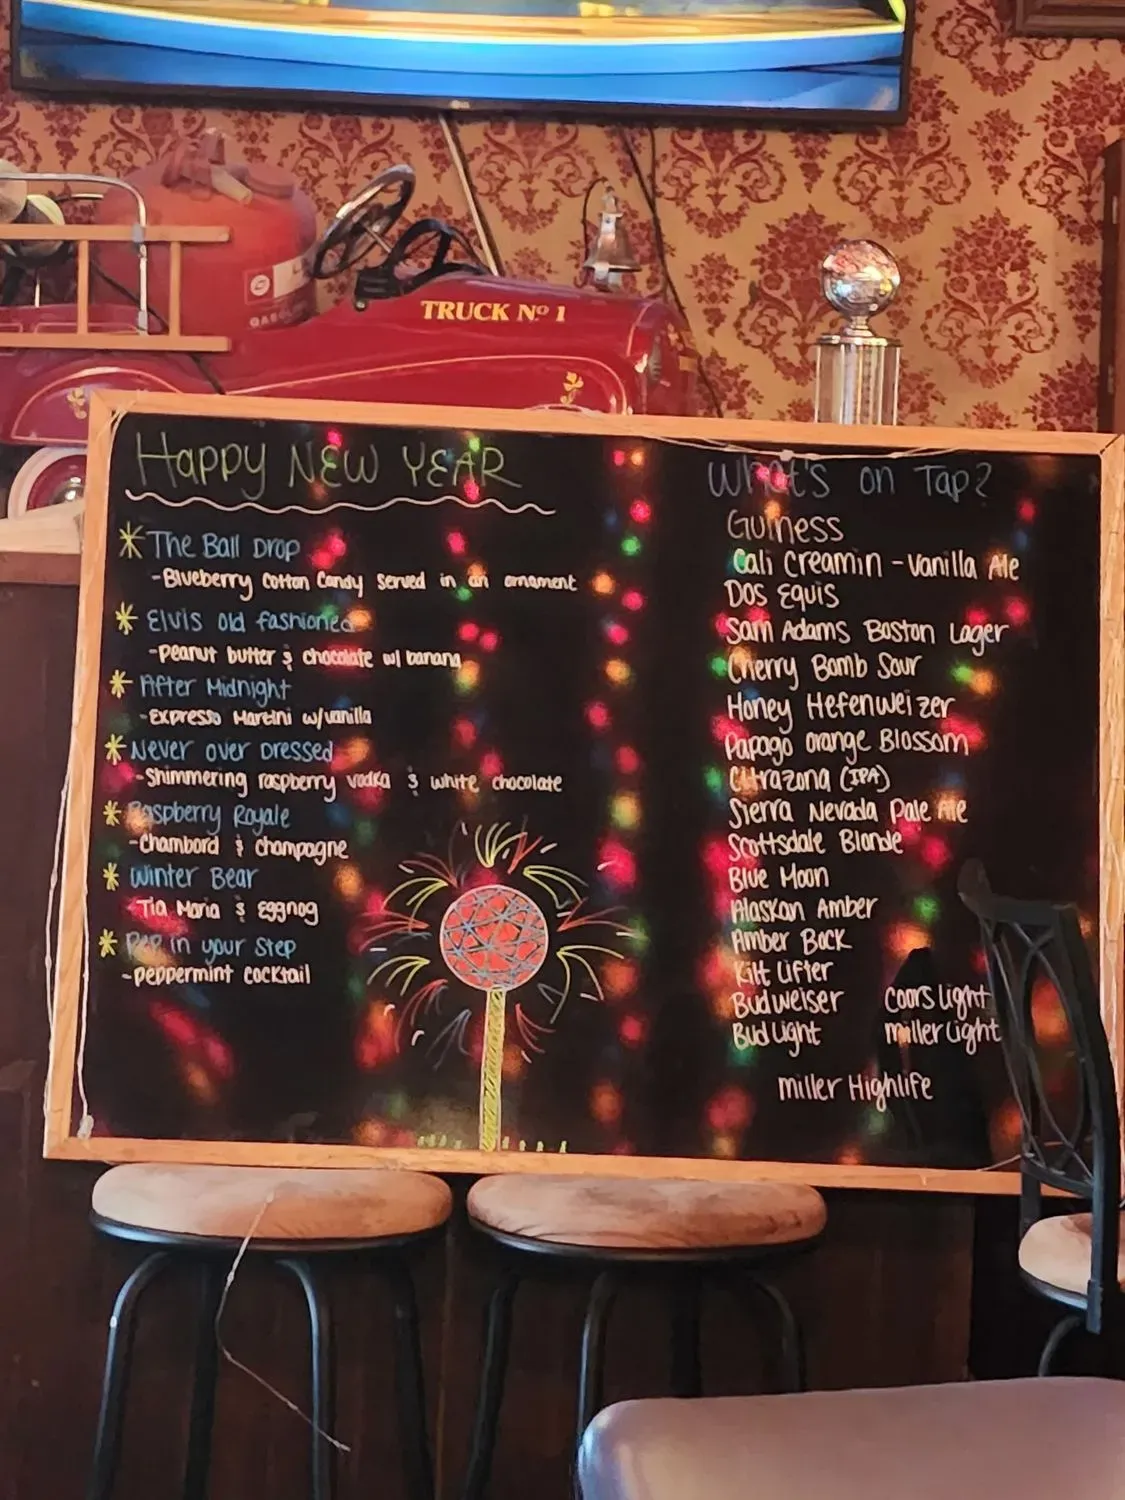 TRUCK Nº 1
GASOL
Happy NEW YEAR
The Ball Drop
-Blueberry Cotton Candy served in an ornament
Elvis old fashioned
-peanut butter & chocolate w/ banana
After Midnight
-Expresso Martini w/vanilla
Never over Dressed
-Shimmering raspberry vodka & white chocolate
Raspberry Royale
-Chambord & champagne
Winter Bear
-Tia Maria & Eggnog
Pep in your Step
-peppermint cocktail
What's on Tap?
Guiness
Cali Creamin - Vanilla Ale
Dos Equis
Sam Adams Boston Lager
Cherry Bomb Sour
Honey Hefenweizer
Papago orange Blossom
Citrazona (IPA)
Sierra Nevada Pale Ale
Scottsdale Blonde
Blue Moon
Alaskan Amber
Amber Bock
Kilt Lifter
Budweiser Coors Light
Bud Light miller Light
miller Highlife